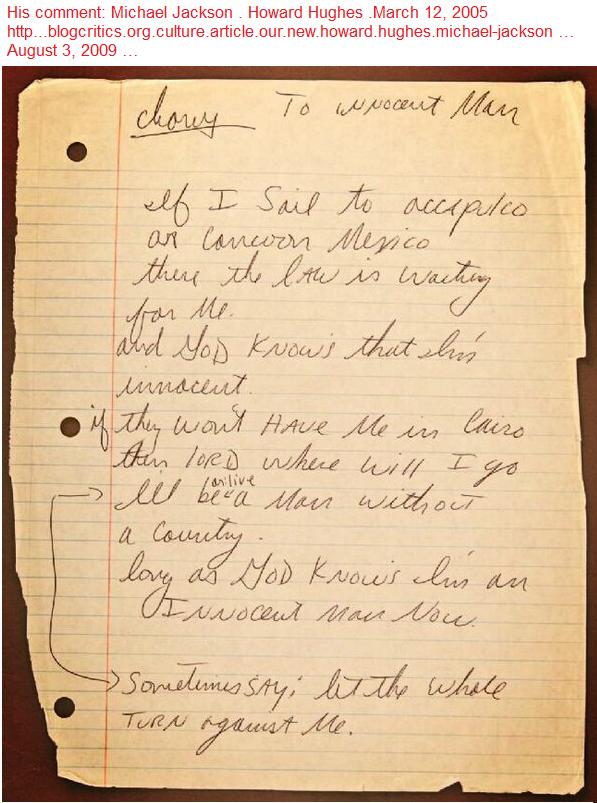 His comment: Michael Jackson . Howard Hughes .March 12, 2005
http...blogcritics.org.culture.article.our.new.howard.hughes.michael-jackson ...
August 3, 2009 ...
To innocent Man
If I Sail to accapulco
or Cancoon Mexico
there the law is waiting
for Me.
and GOD KNOWS that I'm
innocent.
if they won't HAVE Me in Cairo
then lORD where will I go
I'll be a Man without
or live
a Country.
long as GOD KNOWS I'm an
INNOcent man Now.
Sometimes SAY; let the whole
TURN against Me.